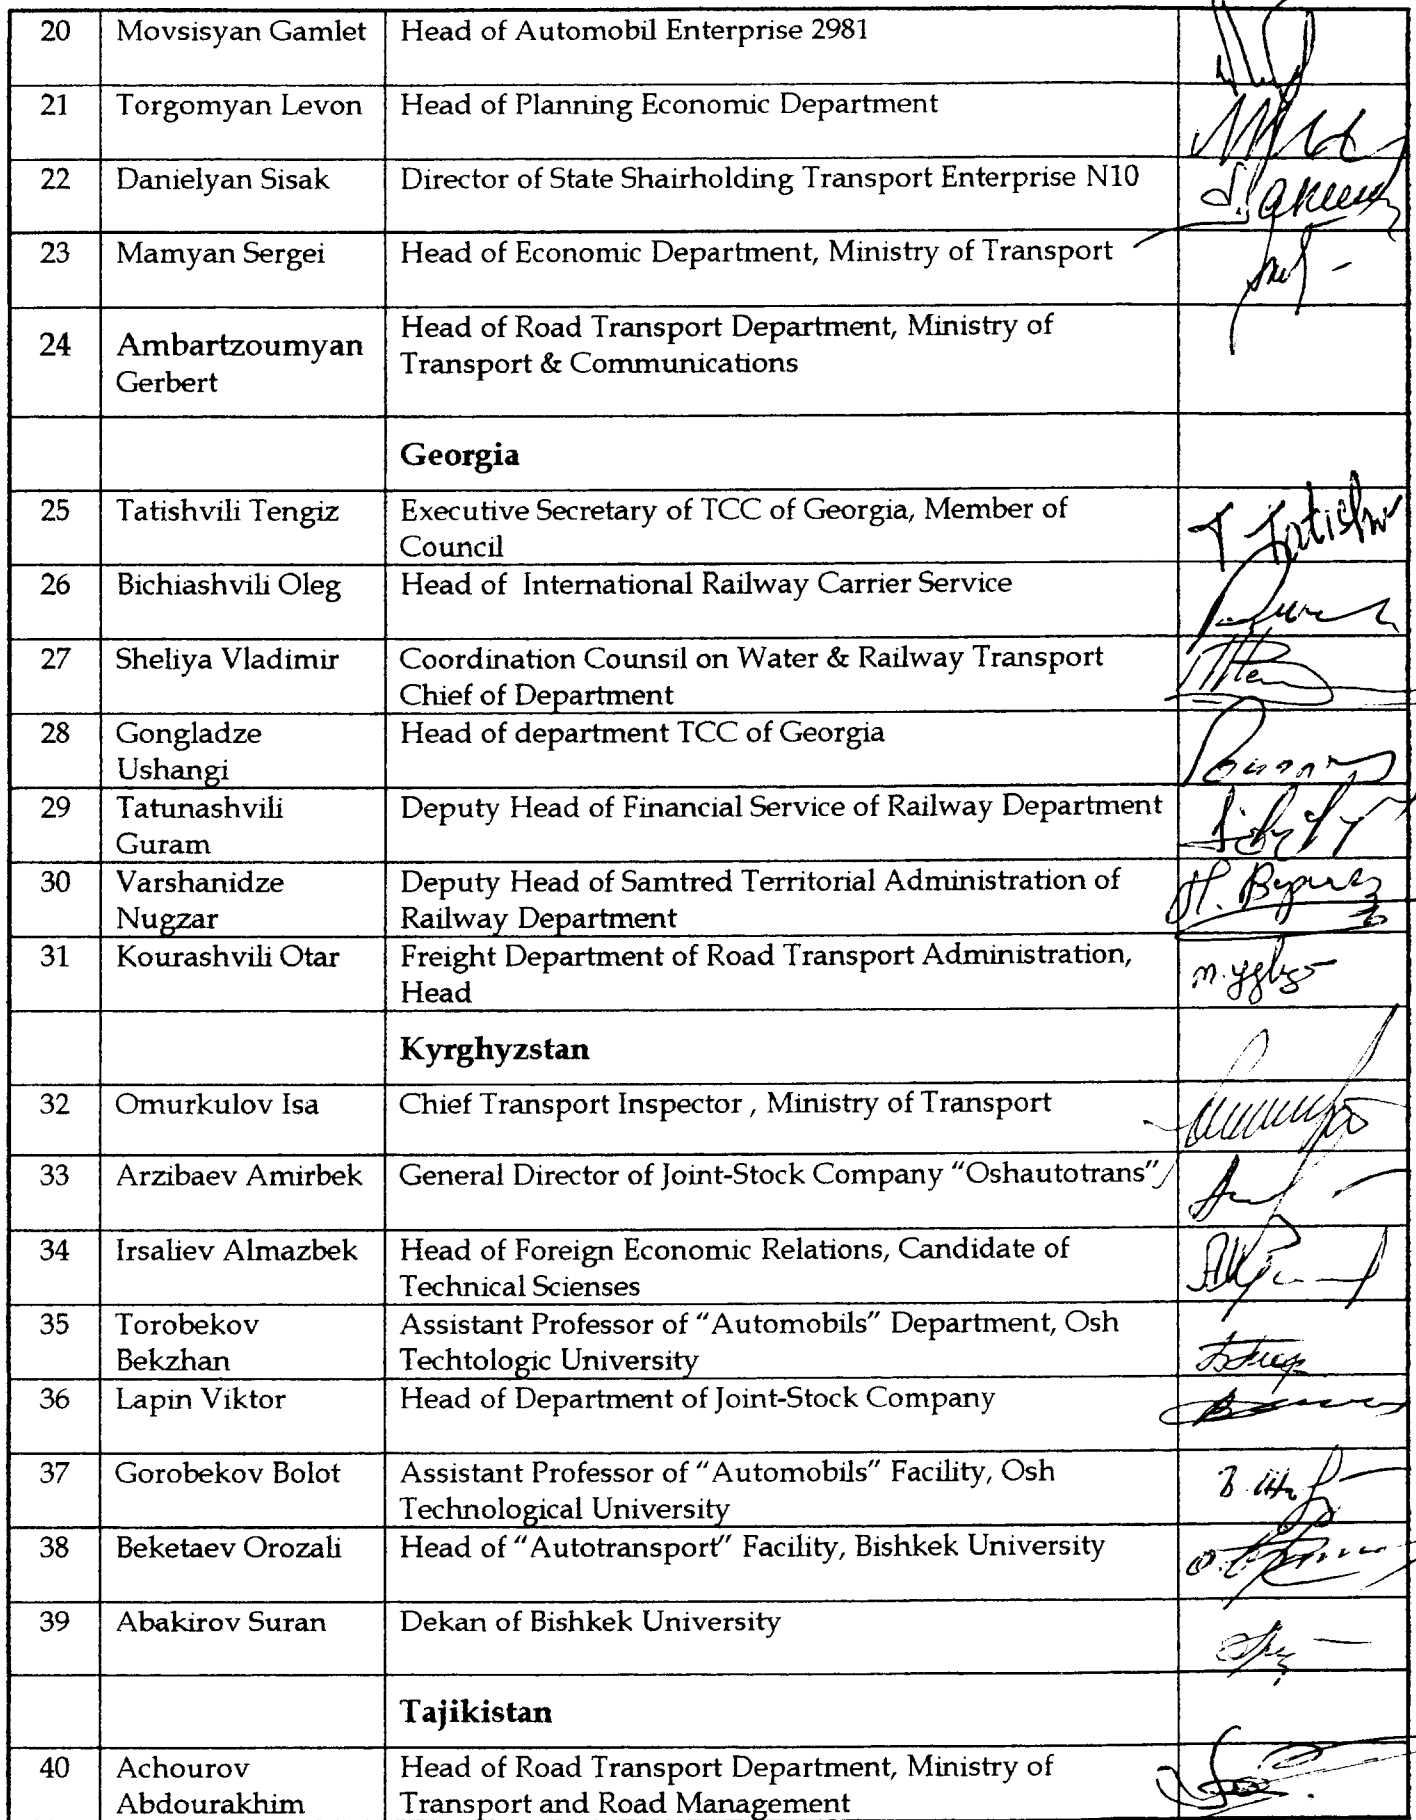 20 Movsisyan Gamlet Head of Automobil Enterprise 2981
21 Torgomyan Levon Head of Planning Economic Department
22 Danielyan Sisak Director of State Shairholding Transport Enterprise N10
23 Mamyan Sergei Head of Economic Department, Ministry of Transport
24 Ambartzoumyan Head of Road Transport Department, Ministry of
Gerbert Transport & Communications
Georgia
25 Tatishvili Tengiz Executive Secretary of TCC of Georgia, Member of
Council
26 Bichiashvili Oleg Head of International Railway Carrier Service
27 Sheliya Vladimir Coordination Counsil on Water & Railway Transport
Chief of Department
28 Gongladze Head of department TCC of Georgia
Ushangi
29 Tatunashvili Deputy Head of Financial Service of Railway Department
Guram
30 Varshanidze Deputy Head of Samtred Territorial Administration of
Nugzar Railway Department
31 Kourashvili Otar Freight Department of Road Transport Administration,
Head
Kyrghyzstan
32 Omurkulov Isa Chief Transport Inspector , Ministry of Transport
33 Arzibaev Amirbek General Director of Joint-Stock Company "Oshautotrans"
34 Irsaliev Almazbek Head of Foreign Economic Relations, Candidate of
Technical Scienses
35 Torobekov Assistant Professor of "Automobils" Department, Osh
Bekzhan Techtologic University
36 Lapin Viktor Head of Department of Joint-Stock Company
37 Gorobekov Bolot Assistant Professor of "Automobils" Facility, Osh
Technological University
38 Beketaev Orozali Head of "Autotransport" Facility, Bishkek University
39 Abakirov Suran Dekan of Bishkek University
Tajikistan
40 Achourov Head of Road Transport Department, Ministry of
Abdourakhim Transport and Road Management